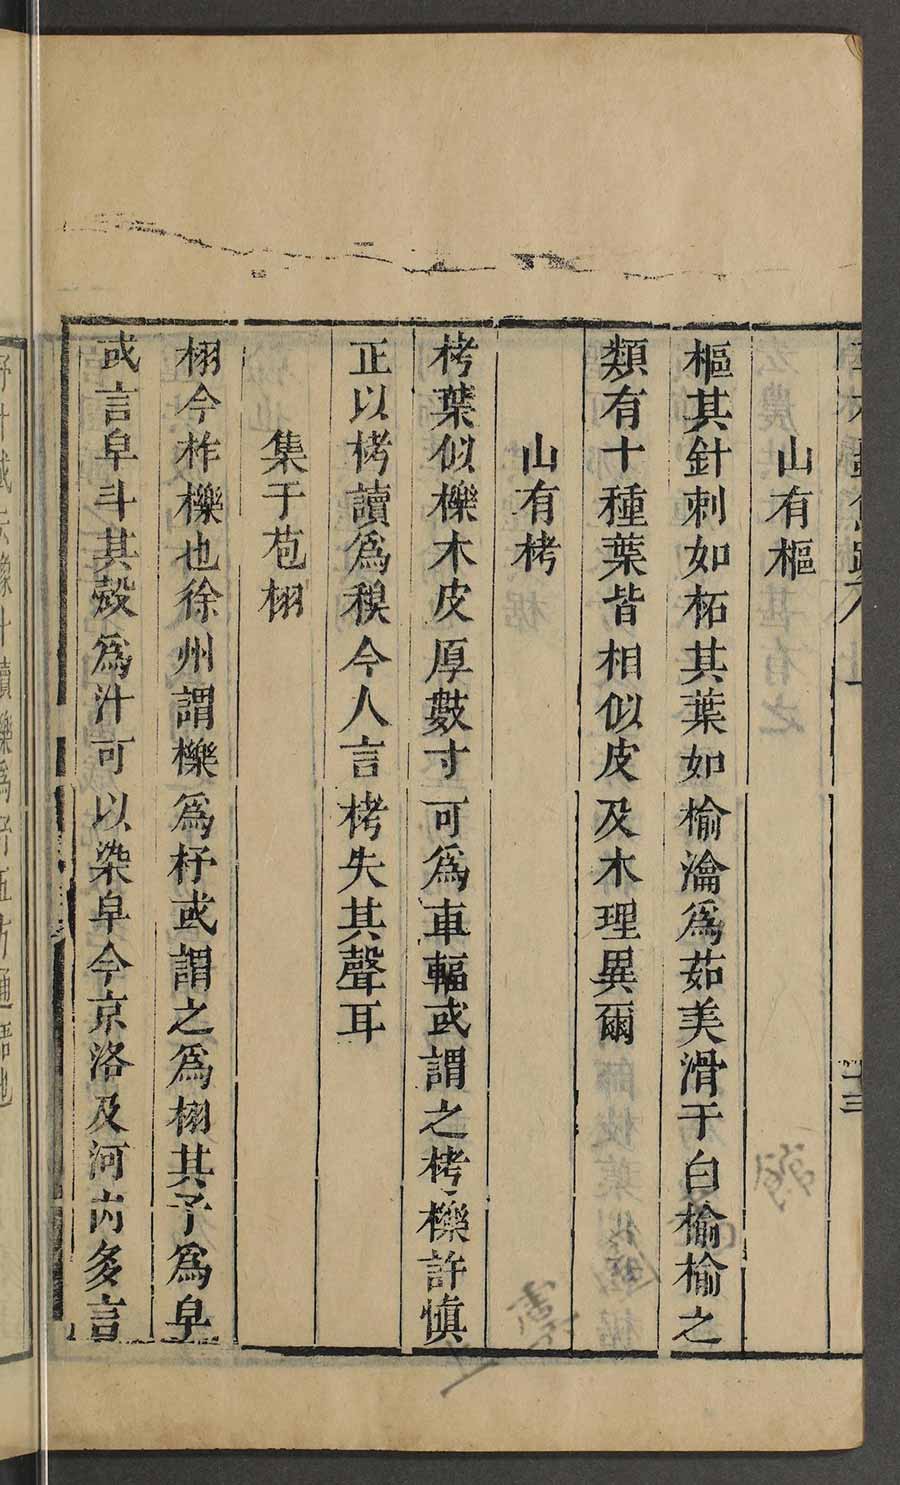 山有樞
樞其針刺如柘其葉如榆瀹爲茹美滑于白榆榆之
類有十種葉皆相似皮及木理異爾
山有栲
栲葉似櫟木皮厚數寸可爲車輻或謂之栲櫟許愼
正以栲讀爲糗今人言栲失其聲耳
集于苞栩
栩今柞櫟也徐州謂櫟爲杼或謂之爲栩其子爲皁
或言皁斗其殼爲汁可以染皁今京洛及河內多言